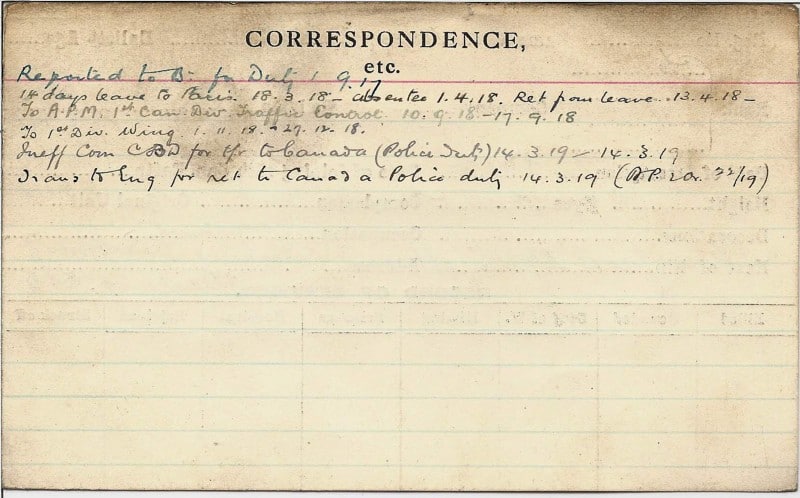 CORRESPONDENCE,
etc.
Reported to Bn for Duty 1.9.17
14 days leave to Paris. 18.3.18 – absentee 1.4.18. Ret from leave. 13.4.18 –
To A.P.M. 1st Can. Div. Traffic Control 10.9.18 – 17.9.18
To 1st Div. Wing. 1.11.18. – 27.12.18.
Ineff Com CBD for tfr to Canada (Police duty) 14.3.19 – 14.3.19
Trans to Eng for ret to Canada Police duty 14.3.19 (22/19)